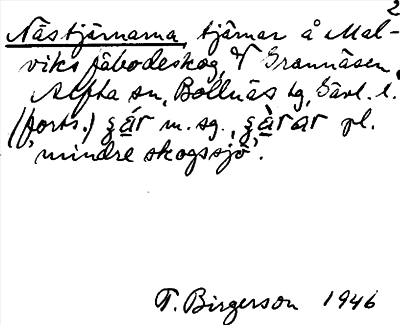 2
Nästjärnarna, tjärnar å Mal-
viks fäbodeskog, V Grannäsen,
Alfta sn, Bollnäs tg, Gävl. l.
(forts.) gár m. sg., gàrar pl.
'mindre skogssjö'.
T. Birgerson 1946